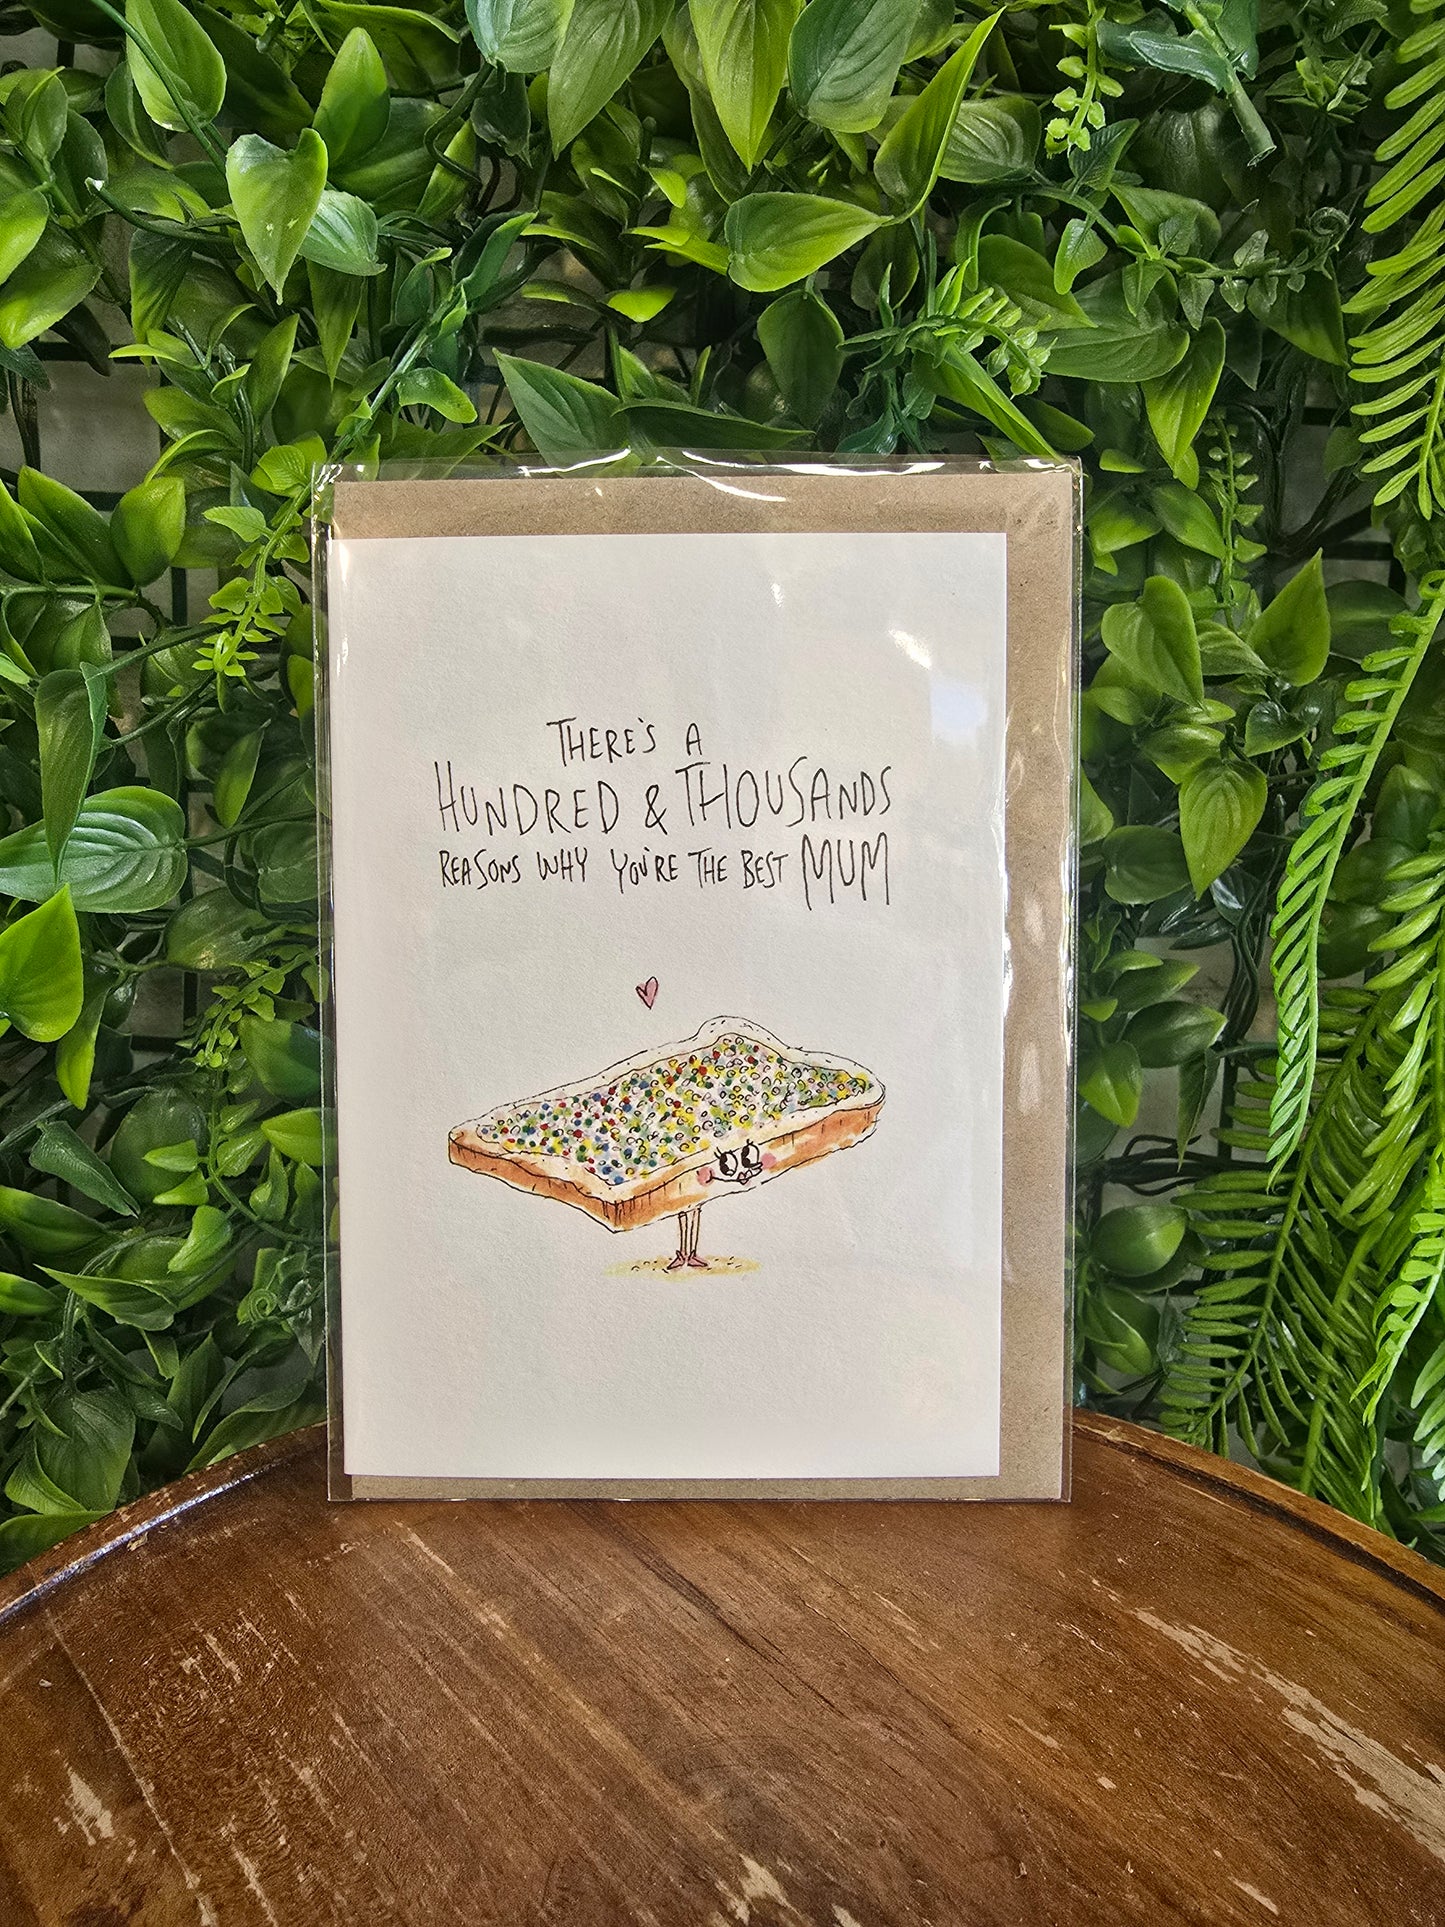 THERE'S A
HUNDRED & THOUSANDS
REASONS WHY YOU'RE THE BEST MUM